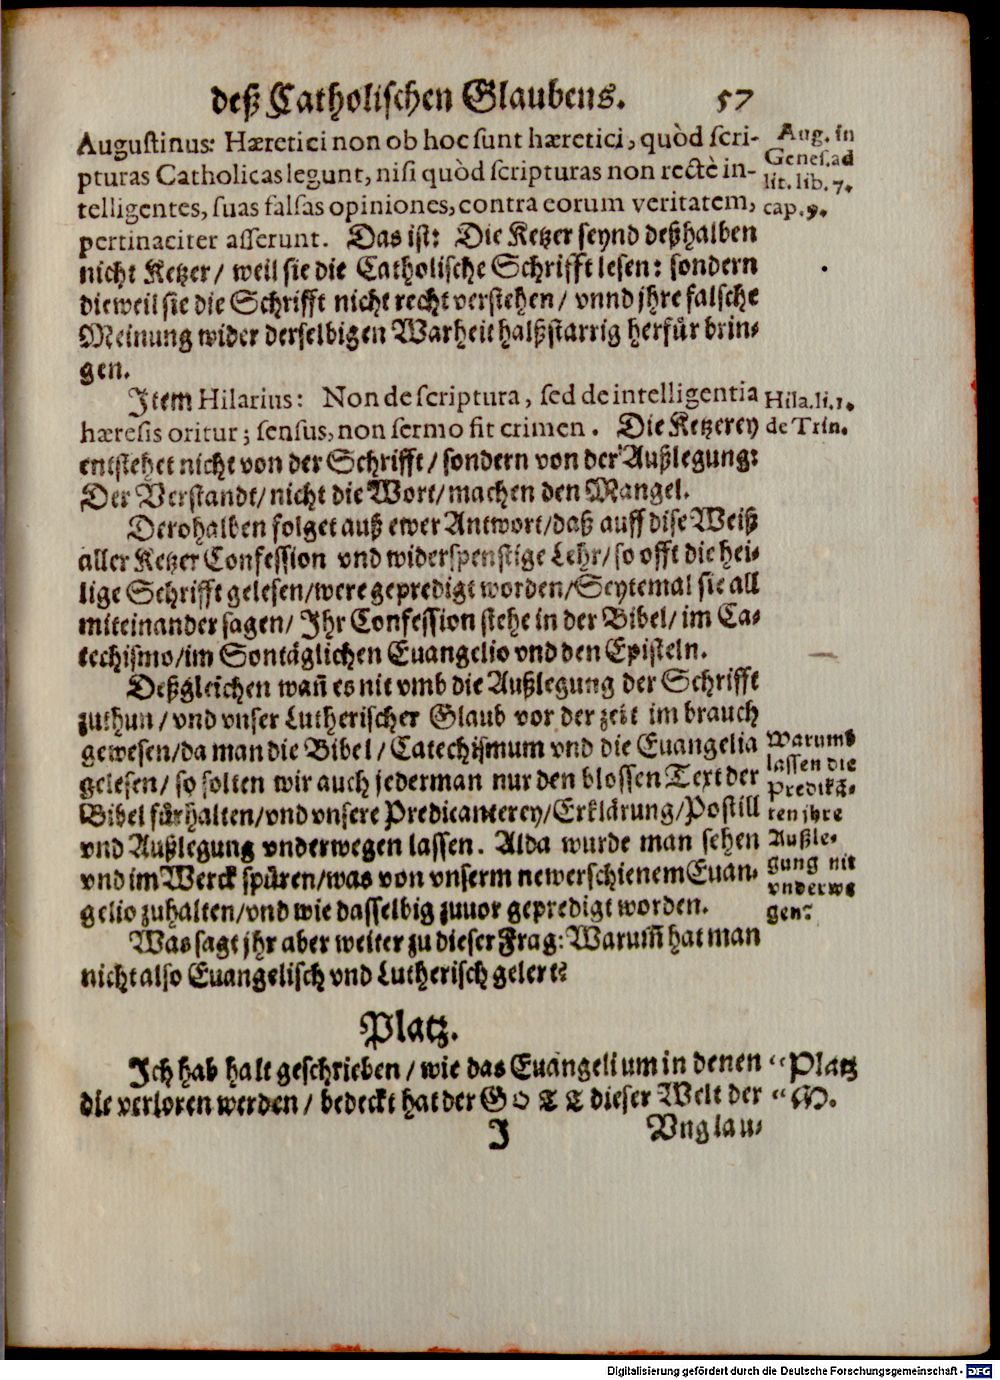 deß Catholischen Glaubens. 57
Augustinus: Hæretici non ob hoc sunt hæretici, quòd scri-
pturas Catholicas legunt, nisi quòd scripturas non rectè in-
telligentes, suas falsas opiniones, contra eorum veritatem,
pertinaciter asserunt. Das ist: Die Ketzer seynd deßhalben
nicht Ketzer / weil sie die Catholische Schrifft lesen: sondern
dieweil sie die Schrifft nicht recht verstehen / vnnd jhre falsche
Meinung wider derselbigen Warheit halßstarrig herfür brin-
gen.
Aug. in
Genes. ad
lit. lib. 7.
cap. 9.
Item Hilarius: Non de scriptura, sed de intelligentia
hæresis oritur; sensus, non sermo fit crimen. Die Ketzerey
entstehet nicht von der Schrifft / sondern von der Außlegung:
Der Verstandt / nicht die Wort / machen den Mangel.
Hila. li. 1.
de Trin.
Derohalben folget auß ewer Antwort / daß auff dise Weiß
aller Ketzer Confession vnd widerspenstige Lehr / so offt die hei-
lige Schrifft gelesen / were gepredigt worden / Seytemal sie all
miteinander sagen / Ihr Confession stehe in der Bibel / im Ca-
techismo / im Sontäglichen Euangelio vnd den Episteln.
Deßgleichen wañ es nit vmb die Außlegung der Schrifft
zuthun / vnd vnser Lutherischer Glaub vor der zeit im brauch
gewesen / da man die Bibel / Catechismum vnd die Euangelia
gelesen / so solten wir auch jederman nur den blossen Text der
Bibel fürhalten / vnd vnsere Predicanterey / Erklärung / Postill
vnd Außlegung vnderwegen lassen. Alda wurde man sehen
vnd im Werck spüren / was von vnserm newerschienem Euan-
gelio zuhalten / vnd wie dasselbig zuuor gepredigt worden.
Warumb
lassen die
Predikā-
ten jhre
Außle-
gung nit
vnderwe
gen?
Was sagt jhr aber weiter zu dieser Frag: Warum̃ hat man
nicht also Euangelisch vnd Lutherisch gelert?
Platz.
Ich hab halt geschrieben / wie das Euangelium in denen
die verloren werden / bedeckt hat der GOTT dieser Welt der
“ Platz
“ M.
I Vnglau-
Digitalisierung gefördert durch die Deutsche Forschungsgemeinschaft - DFG